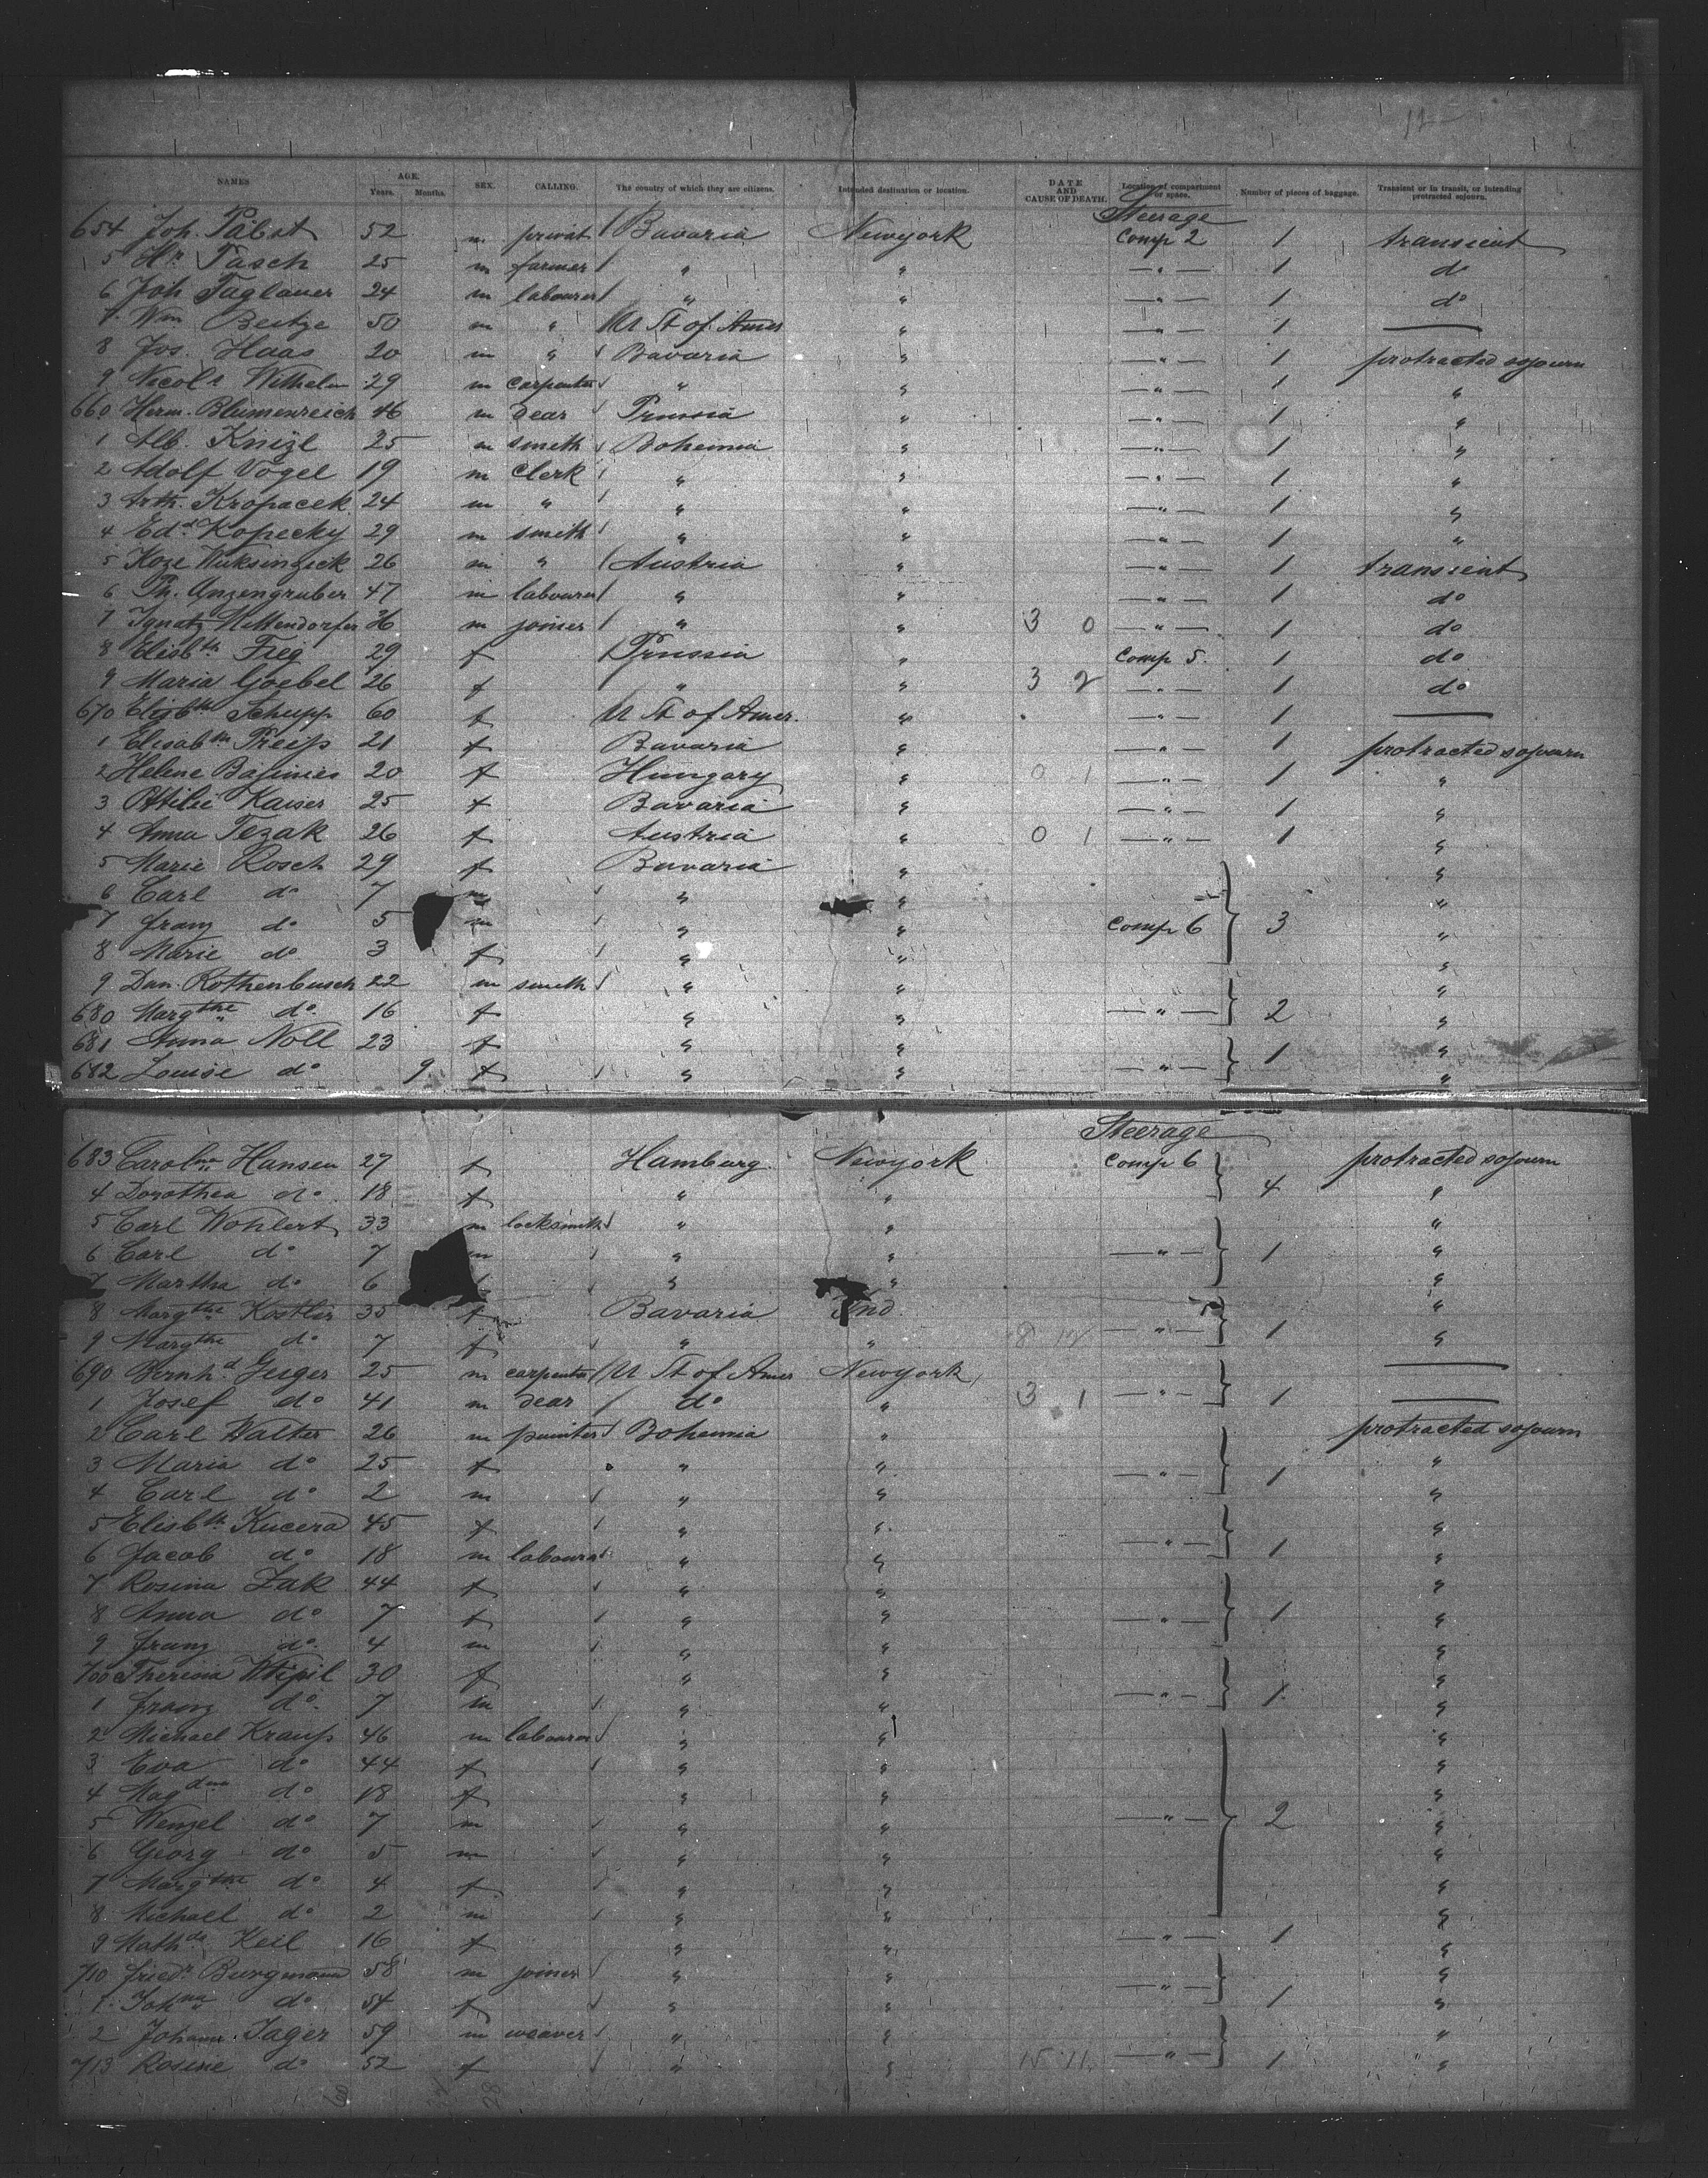 12
NAMES AGE. Years. Months. SEX. CALLING. The country of which they are citizens. Intended destination or location. DATE AND CAUSE OF DEATH. Location of compartment or space. Number of pieces of baggage. Transient or in transit, or intending protracted sojourn.
Steerage
654 Joh. Pabst 52 m privat Bavaria Newyork Comp 2 1 transient
5 Hn Tasch 25 m farmer " " " 1 do
6 Joh Taglauer 24 m labourer " " " 1 do
7 Wm Beitze 50 m " U St of Amer " " 1 —
8 Jos. Haas 20 m " Bavaria " " 1 protracted sojourn
9 Wilhelm 29 m carpenter " " " 1 "
660 Herm. Blumenreich 46 m dear Prussia " " 1 "
1 Alb. Knizl 25 m smith Bohemia " " 1 "
2 Adolf Vogel 19 m Clerk " " " 1 "
3 Arth. Kropacek 24 m " " " " 1 "
4 Edd Kopecky 29 m smith " " " 1 "
5 Koze 26 m " Austria " " 1 transient
6 Ph. Anzengruber 47 m labourer " " " 1 do
7 Ignatz Mittendorfer 36 m joiner " " 3 0 " 1 do
8 Elisbth Fieg 29 f Prussia " Comp 5. 1 do
9 Maria Goebel 26 f " " 3 2 " 1 do
670 Elisbth Schupp 60 f U St of Amer. " " 1 —
1 Elisabth Preiss 21 f Bavaria " " 1 protracted sojourn
2 Helene 20 f Hungary " 0 1 " 1 "
3 Ottilie Kaiser 25 f Bavaria " " 1 "
4 Anna Tezak 26 f Austria " 0 1 " 1 "
5 Marie Rosch 29 f Bavaria " "
6 Carl do 7 m " " "
7 Franz do 5 m " " Comp 6 3 "
8 Marie do 3 f " " "
9 Dan. Rothenbusch 22 m smith " " "
680 Margthe do 16 f " " " 2 "
681 Anna Noll 23 f " " "
682 Louise do 9 f " " " 1 "
Steerage
683 Carolna Hansen 27 f Hamburg Newyork Comp 6 protracted sojourn
4 Dorothea do 18 f " " 4 "
5 Carl Wohlert 33 m locksmith " " "
6 Carl do 7 m " " " 1 "
7 Martha do 6 " " "
8 Margthe Kostler 35 f Bavaria Ind. "
9 Margthe do 7 f " " 8 12 " 1 "
690 Bernhd Geiger 25 m carpenter U St of Amer Newyork —
1 Josef do 41 m dear do " 3 1 " 1 —
2 Carl Walter 26 m painter Bohemia " protracted sojourn
3 Maria do 25 f " " " 1 "
4 Carl do 2 m " " "
5 Elisbth Kucera 45 f " " "
6 Jacob do 18 m labourer " " " 1 "
7 Rosina Zak 44 f " " "
8 Anna do 7 f " " " 1 "
9 Franz do 4 m " " "
700 Theresia 30 f " " "
1 Franz do 7 m " " " 1 "
2 Michael Krauss 46 m labourer " " "
3 Eva do 44 f " " "
4 Magdna do 18 f " " "
5 Wenzel do 7 m " " " 2 "
6 Georg do 5 m " " "
7 Margthe do 4 f " " "
8 Michael do 2 m " " "
9 Mathde Keil 16 f " " " 1 "
710 Friedr Burgmann 58 m joiner " " "
1 Johna do 54 f " " " 1 "
2 Johann Jager 59 m weaver " " "
713 Rosine do 52 f " " 15 11 " 1 "